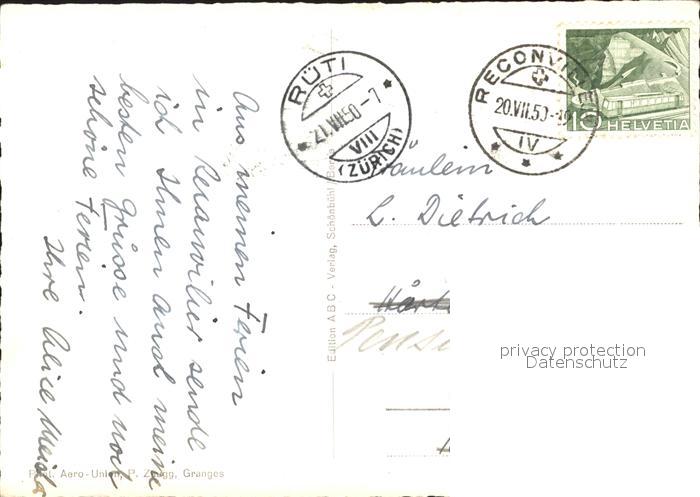 Aus meinen Ferien
in Reconvilier sende
ich Ihnen auch meine
besten Grüsse und noch
schöne Ferien.
Ihre Alice
Phot. Aero-Union, P. Zaugg, Granges
Edition ABC - Verlag, Schönbühl/Bern
RÜTI
21.VII.50-7
VIII
(ZÜRICH)
RECONVILIER
20.VII.50-
IV
10 HELVETIA
Fräulein
L. Dietrich
privacy protection
Datenschutz